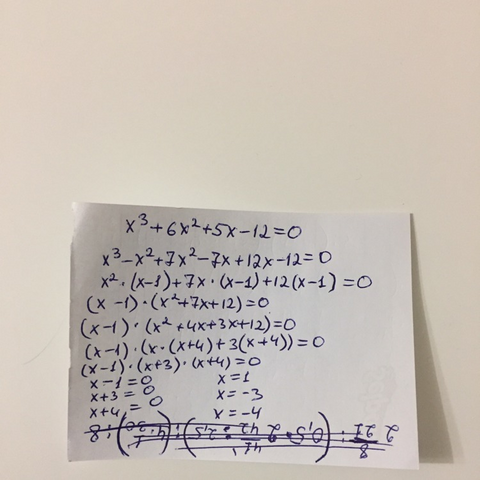 x³+6x²+5x-12=0
x³-x²+7x²-7x+12x-12=0
x²·(x-1)+7x·(x-1)+12(x-1)=0
(x-1)·(x²+7x+12)=0
(x-1)·(x²+4x+3x+12)=0
(x-1)·(x·(x+4)+3(x+4))=0
(x-1)·(x+3)·(x+4)=0
x-1=0 x=1
x+3=0 x=-3
x+4=0 x=-4